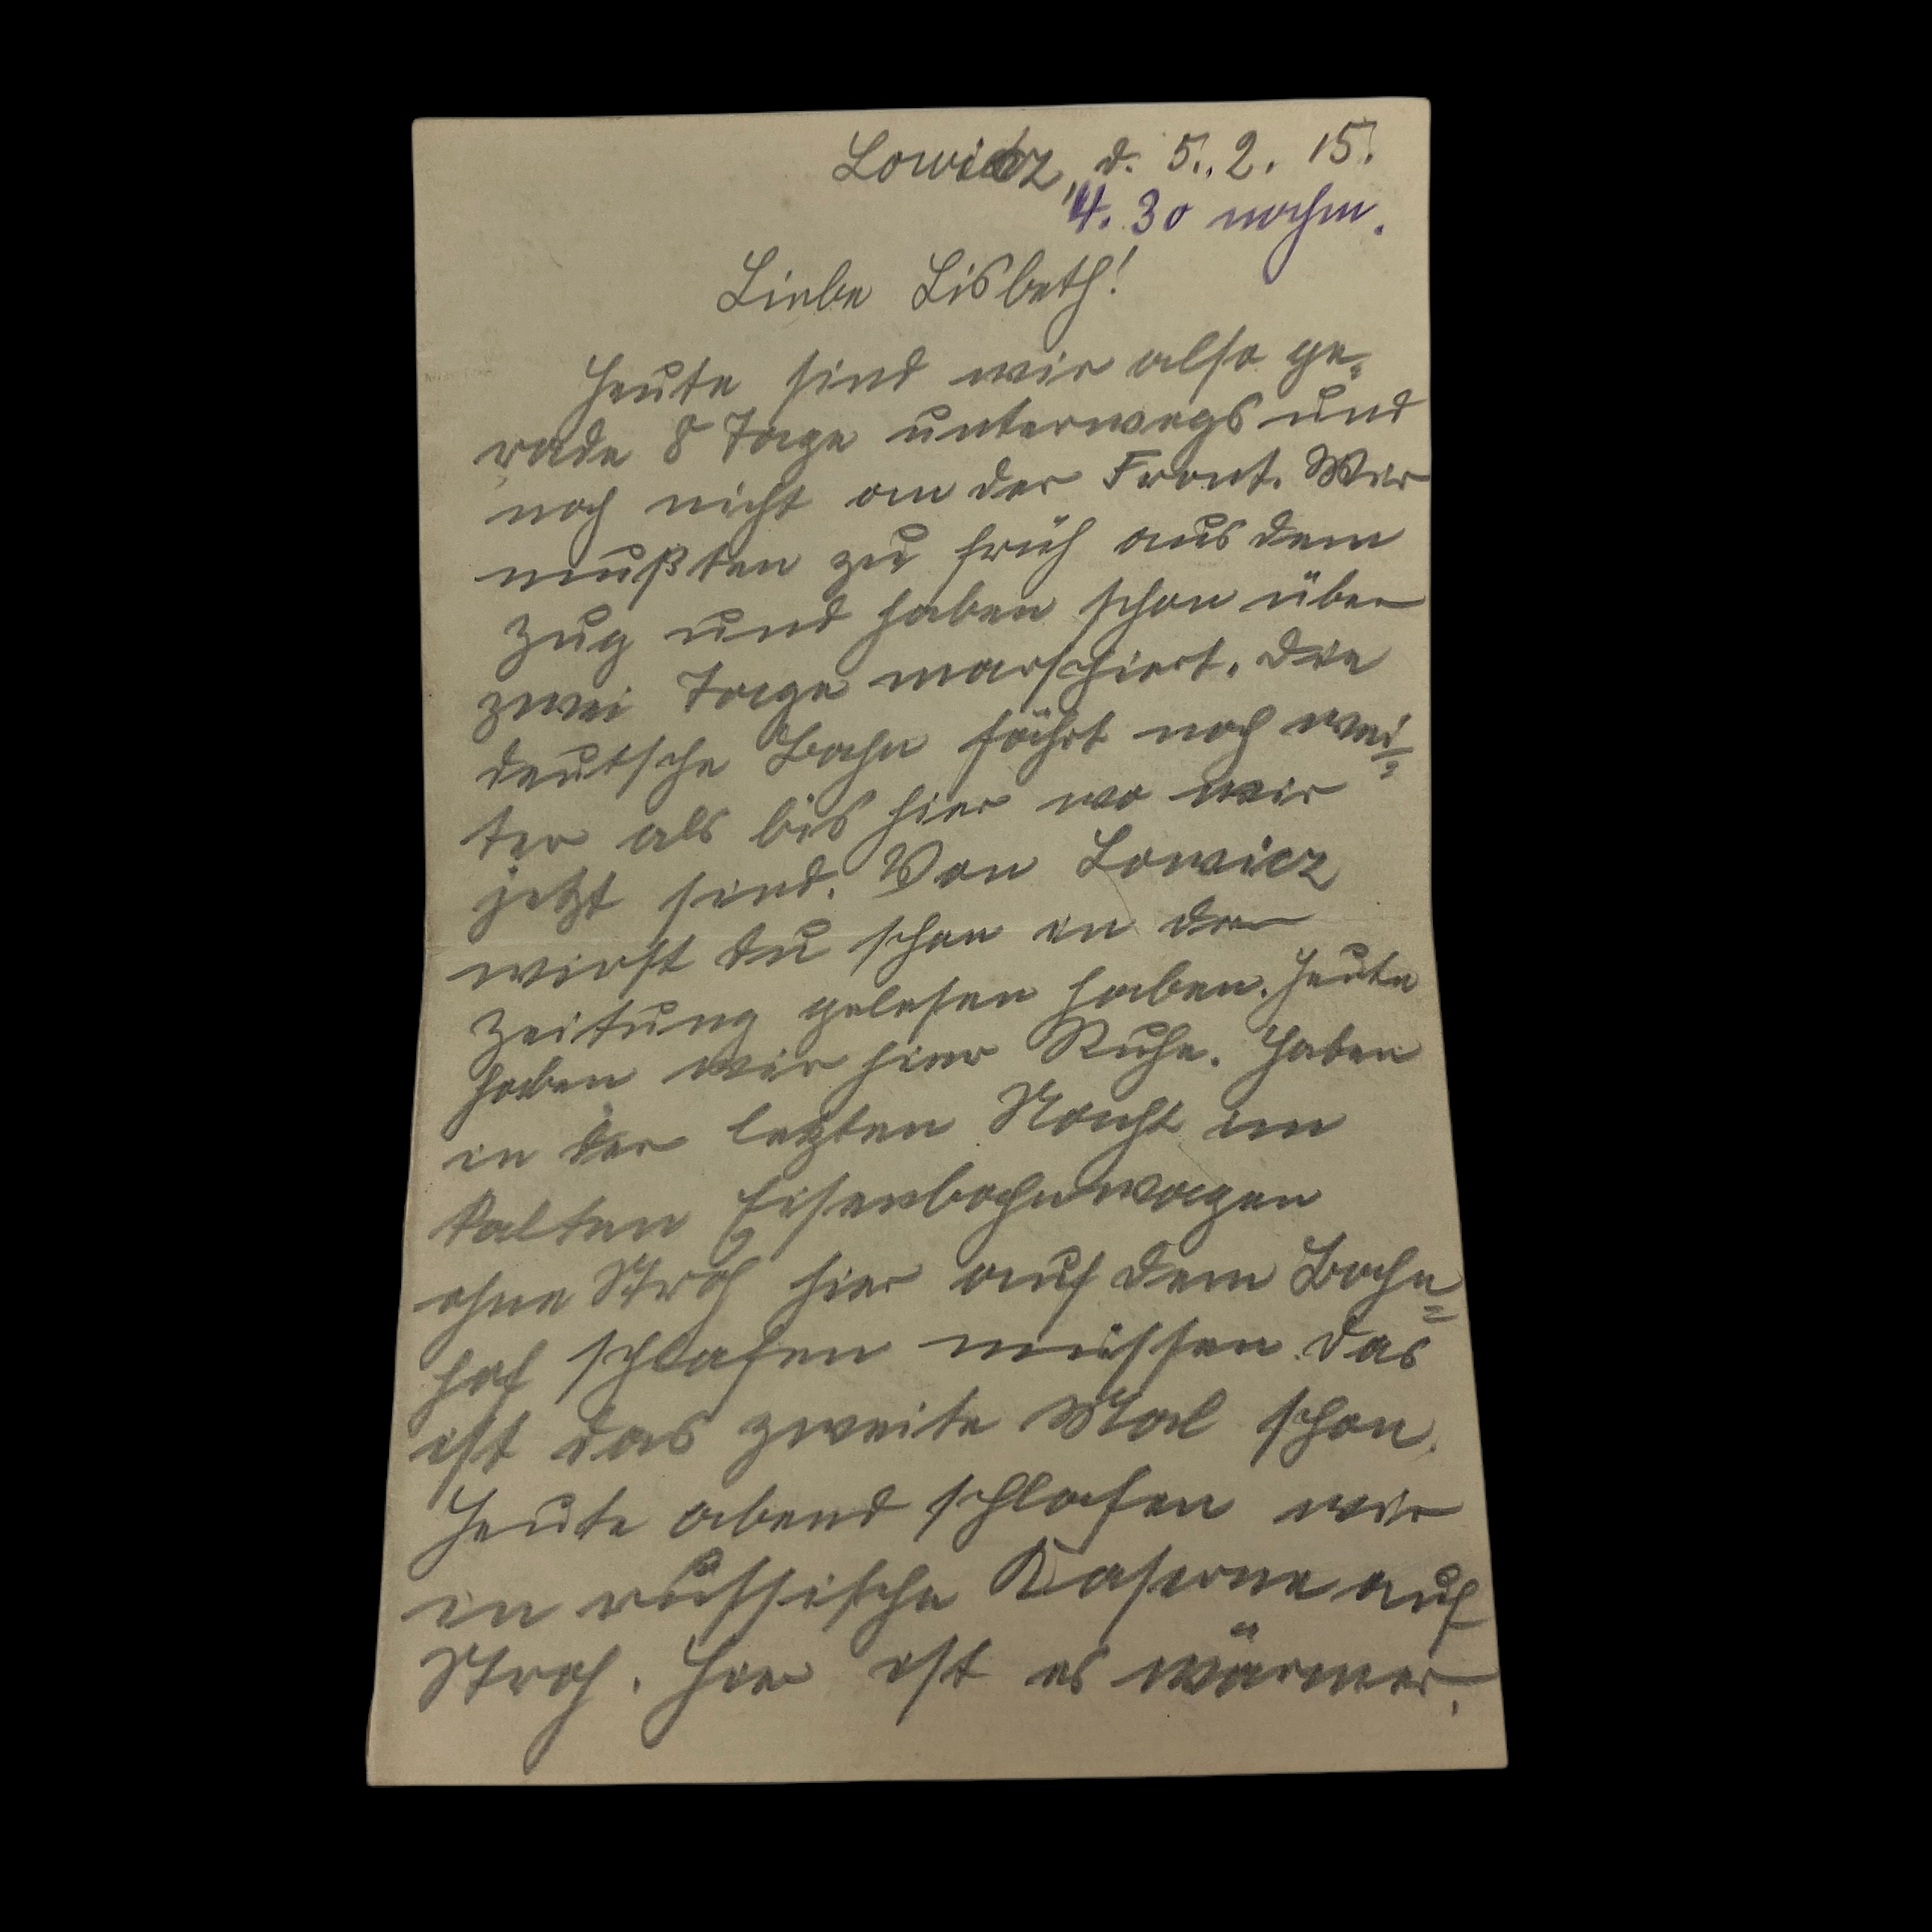 Lowicz, d. 5.2.15.
4.30 nachm.
Liebe Lisbeth!
Heute sind wir also ge-
rade 8 Tage unterwegs und
noch nicht an der Front. Wir
mußten zu früh aus dem
Zug und haben schon über
zwei Tage marschiert. Die
deutsche Bahn fährt noch wei-
ter als bis hier wo wir
jetzt sind. Von Lowicz
wirst du schon in der
Zeitung gelesen haben. Heute
haben wir hier Ruhe. Haben
in der letzten Nacht im
kalten Eisenbahnwagen
ohne Stroh hier auf dem Bahn-
hof schlafen müssen. Das
ist das zweite Mal schon.
Heute abend schlafen wir
in russische Kaserne auf
Stroh. Hier ist es wärmer.